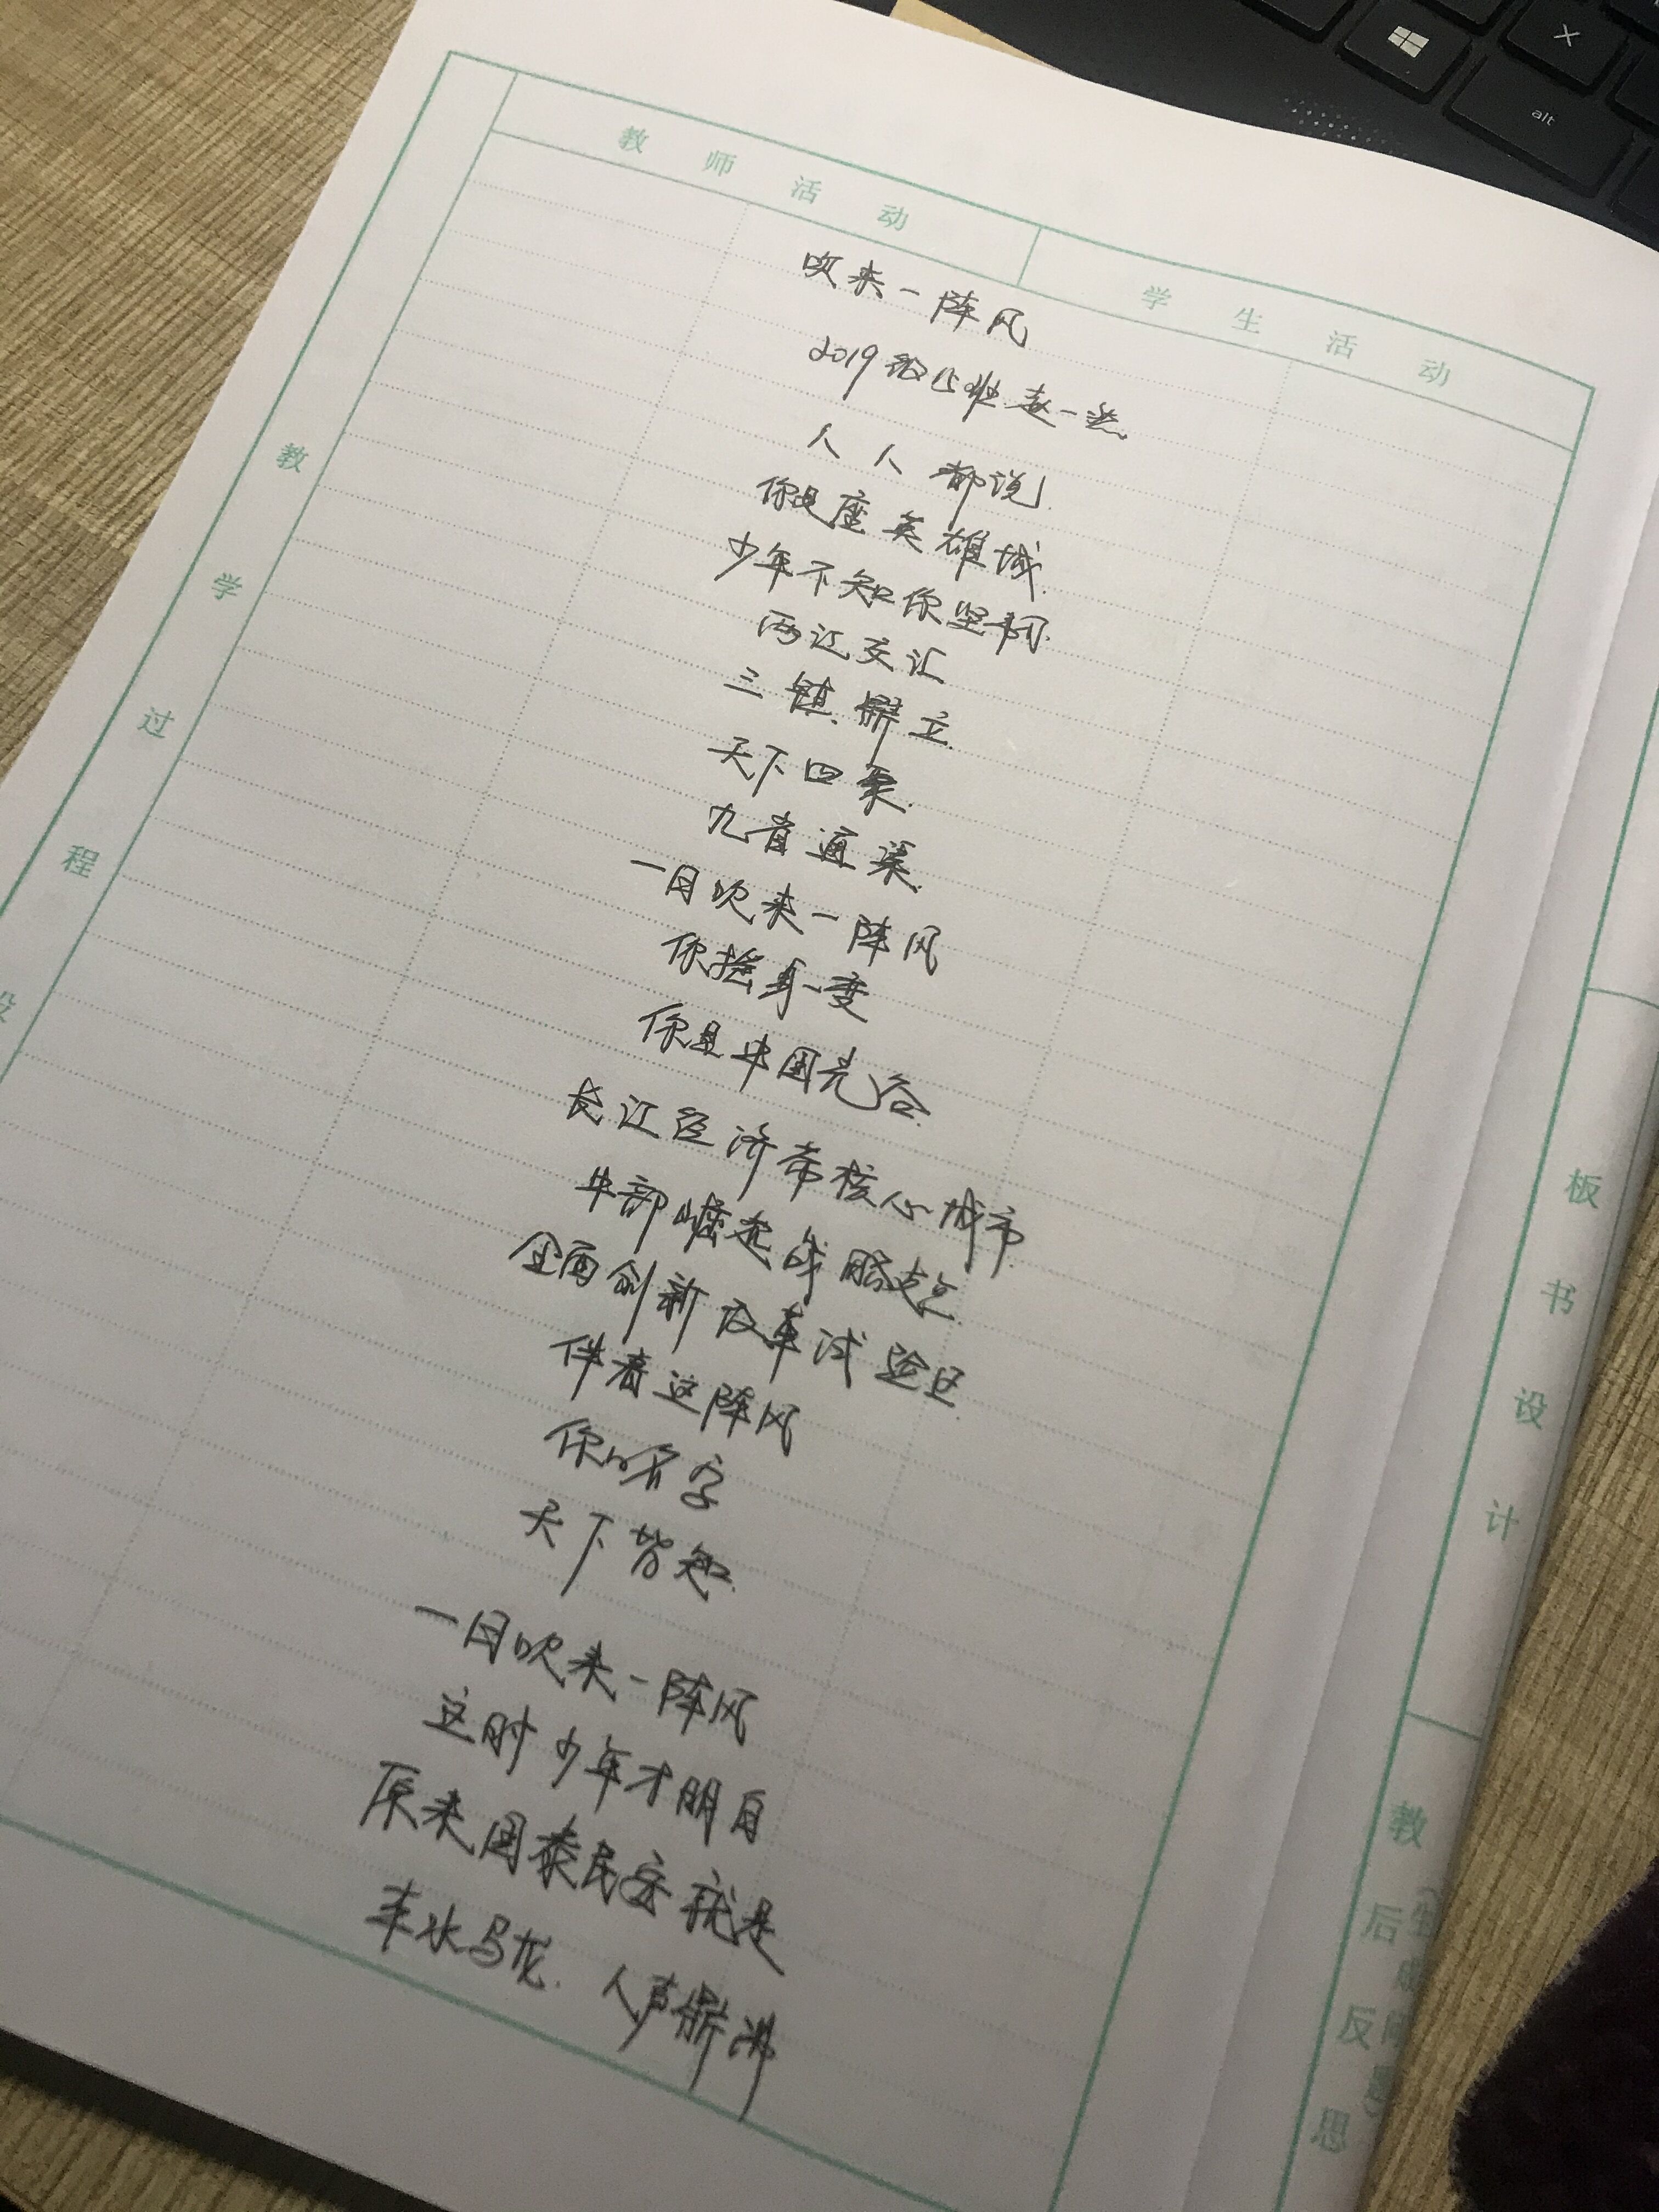 教师活动
学生活动
教学过程设
吹来一阵风
2019级15班赵一然
人人都说
你是座英雄城
少年不知你坚韧
两江交汇
三镇鼎立
天下四聚
九省通渠
一日吹来一阵风
你摇身一变
你是中国光谷
长江经济带核心城市
中部崛起战略支点
全面创新改革试验区
伴着这阵风
你的名字
天下皆知
一日吹来一阵风
这时少年才明白
原来国泰民安就是
车水马龙.人声鼎沸
板书设计
教
后
反
思
alt
X